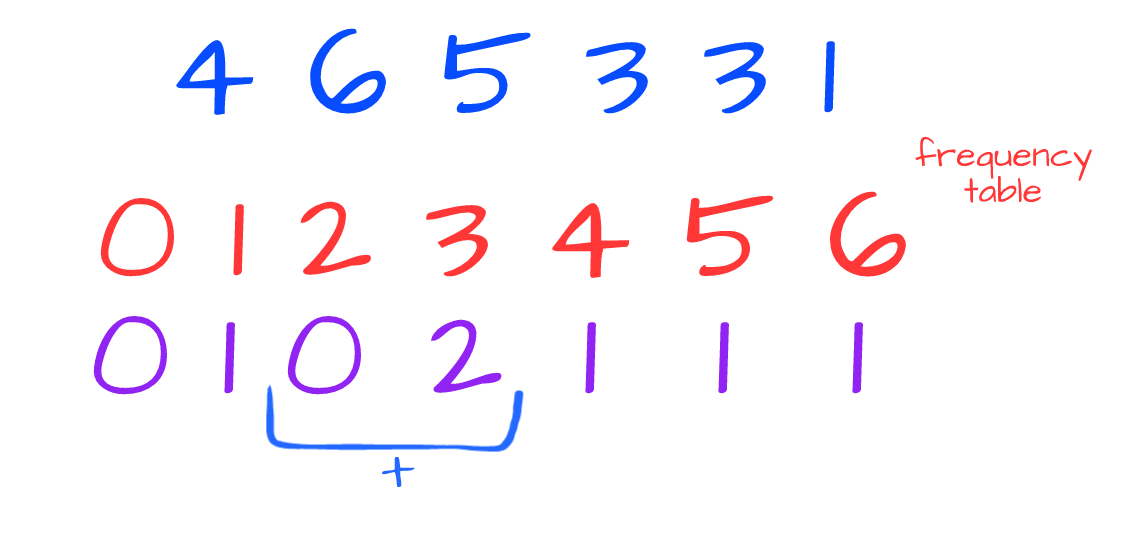 4 6 5 3 3 1
frequency
table
0 1 2 3 4 5 6
0 1 0 2 1 1 1
+